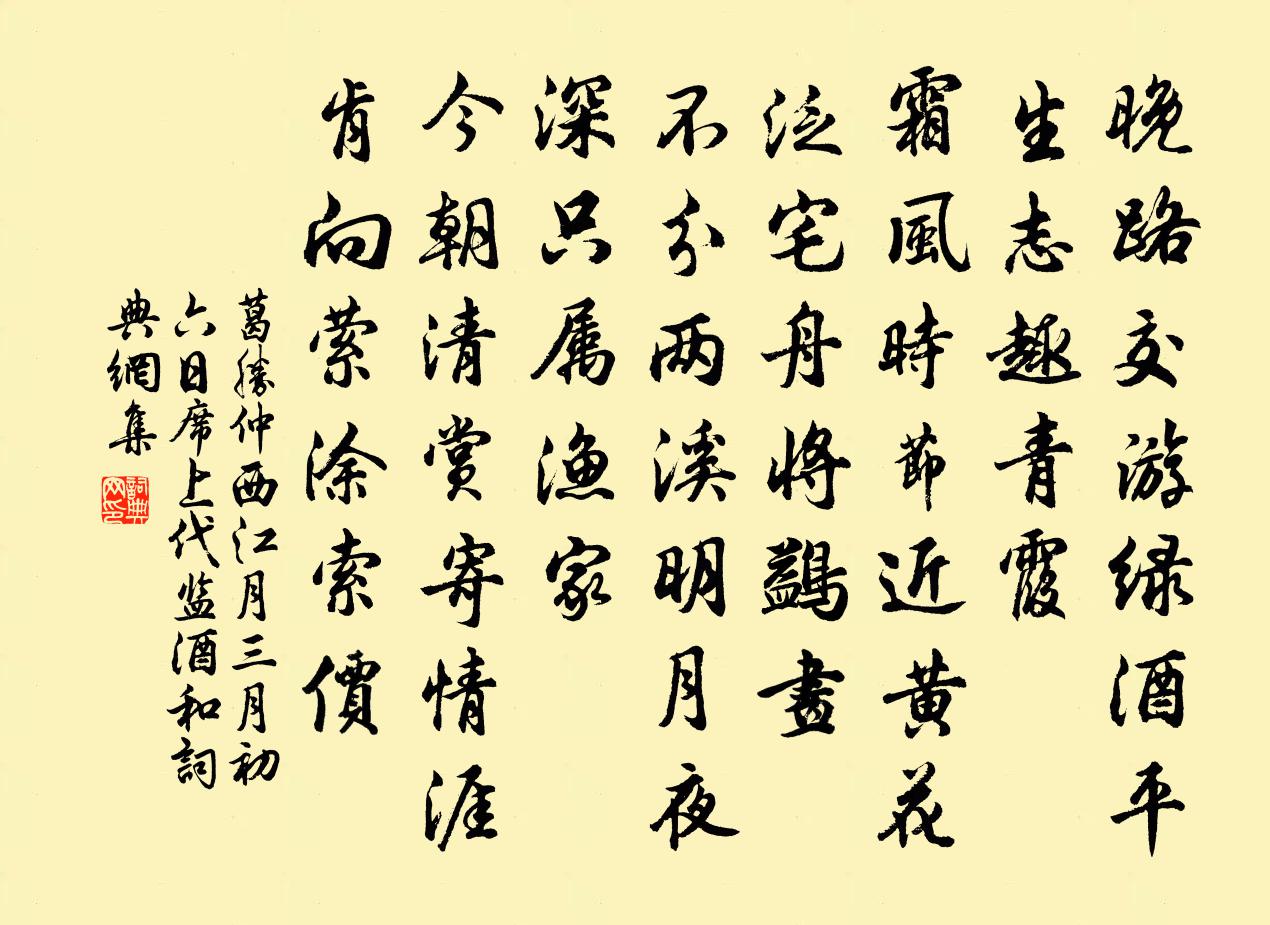 晚路交游绿酒平
生志趣青霞
霜風時節近黄花
泛宅舟将鷁畫
不分两溪明月夜
深只属渔家
今朝清赏寄情涯
肯向萦涂索價
葛勝仲西江月三月初
六日席上代监酒和詞
典網集
詞典网印